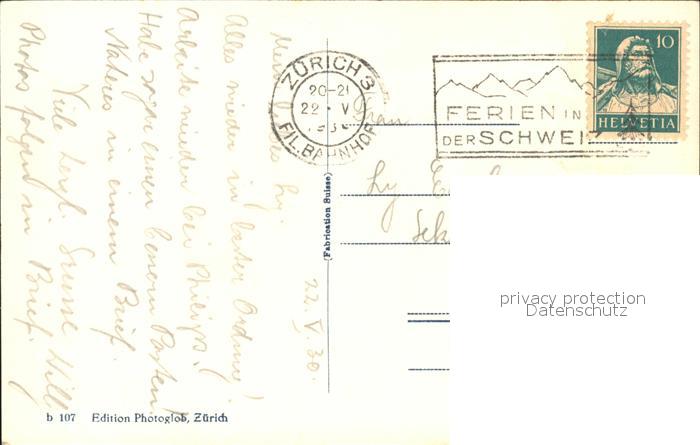 Alles wieder in bester Ordnung!
Arbeite wieder bei Philips!
Habe sogar einen besseren Posten!
Näheres in einem Brief.
Viele herzl. Grüsse Willy
Photos folgen im Brief.
22. V. 30.
b 107 Edition Photoglob, Zürich
(Fabrication Suisse)
ZÜRICH 3
20-21
22. V
FIL. BAHNHOF
FERIEN IN
DER SCHWEIZ
10
HELVETIA
privacy protection
Datenschutz